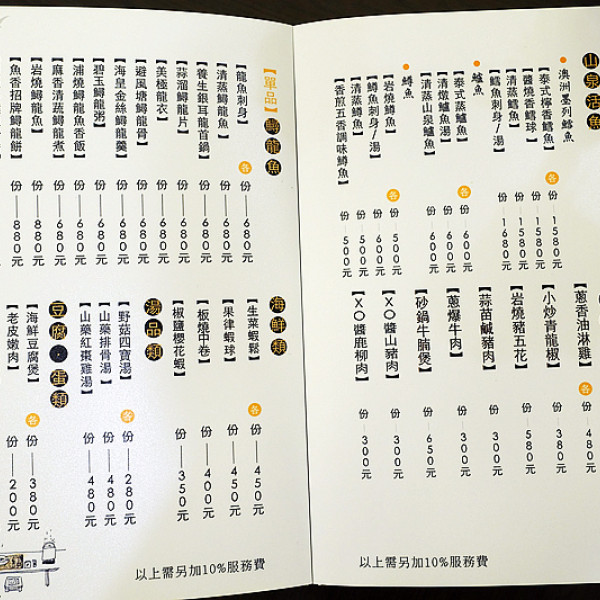 山泉活魚
●澳洲墨列鱈魚
【泰式檸香鱈魚】各 份 1580元
【醬燒香鱈球】 份 1580元
【清蒸鱈魚】 份 1580元
【鱈魚刺身/湯】 份 1680元
●鱸魚
【泰式蒸鱸魚】各 份 600元
【清燉鱸魚湯】 份 600元
【清蒸山泉鱸魚】 份 600元
●鱒魚
【岩燒鱒魚】各 份 500元
【鱒魚刺身/湯】 份 600元
【清蒸鱒魚】 份 600元
【香煎五香調味鱒魚】 份 500元
【蔥香油淋雞】各 份 480元
【小炒青龍椒】 份 380元
【岩燒豬五花】 份 580元
【蒜苗鹹豬肉】 份 300元
【蔥爆牛肉】 份 300元
【砂鍋牛腩煲】 份 650元
【XO醬山豬肉】 份 300元
【XO醬鹿柳肉】 份 300元
以上需另加10%服務費
【單品】鱘龍魚
【龍魚刺身】各 份 680元
【清蒸鱘龍魚】 份 680元
【養生銀耳龍首鍋】 份 680元
【蒜溜鱘龍片】 份 680元
【美極龍衣】 份 680元
【避風塘鱘龍骨】 份 680元
【海皇金絲鱘龍羹】 份 680元
【碧玉鱘龍粥】 份 680元
【浦燒鱘龍魚香飯】 份 680元
【麻香清蔬鱘龍煮】 份 680元
【岩燒鱘龍魚】 份 880元
【魚香招牌鱘龍餅】 份 880元
海鮮類
【生菜蝦鬆】各 份 450元
【果律蝦球】 份 450元
【板燒中卷】 份 400元
【椒鹽櫻花蝦】 份 350元
湯品類
【野菇四寶湯】各 份 280元
【山藥排骨湯】 份 480元
【山藥紅棗雞湯】 份 480元
豆腐●蛋類
【海鮮豆腐煲】各 份 380元
【老皮嫩肉】 份 200元
以上需另加10%服務費